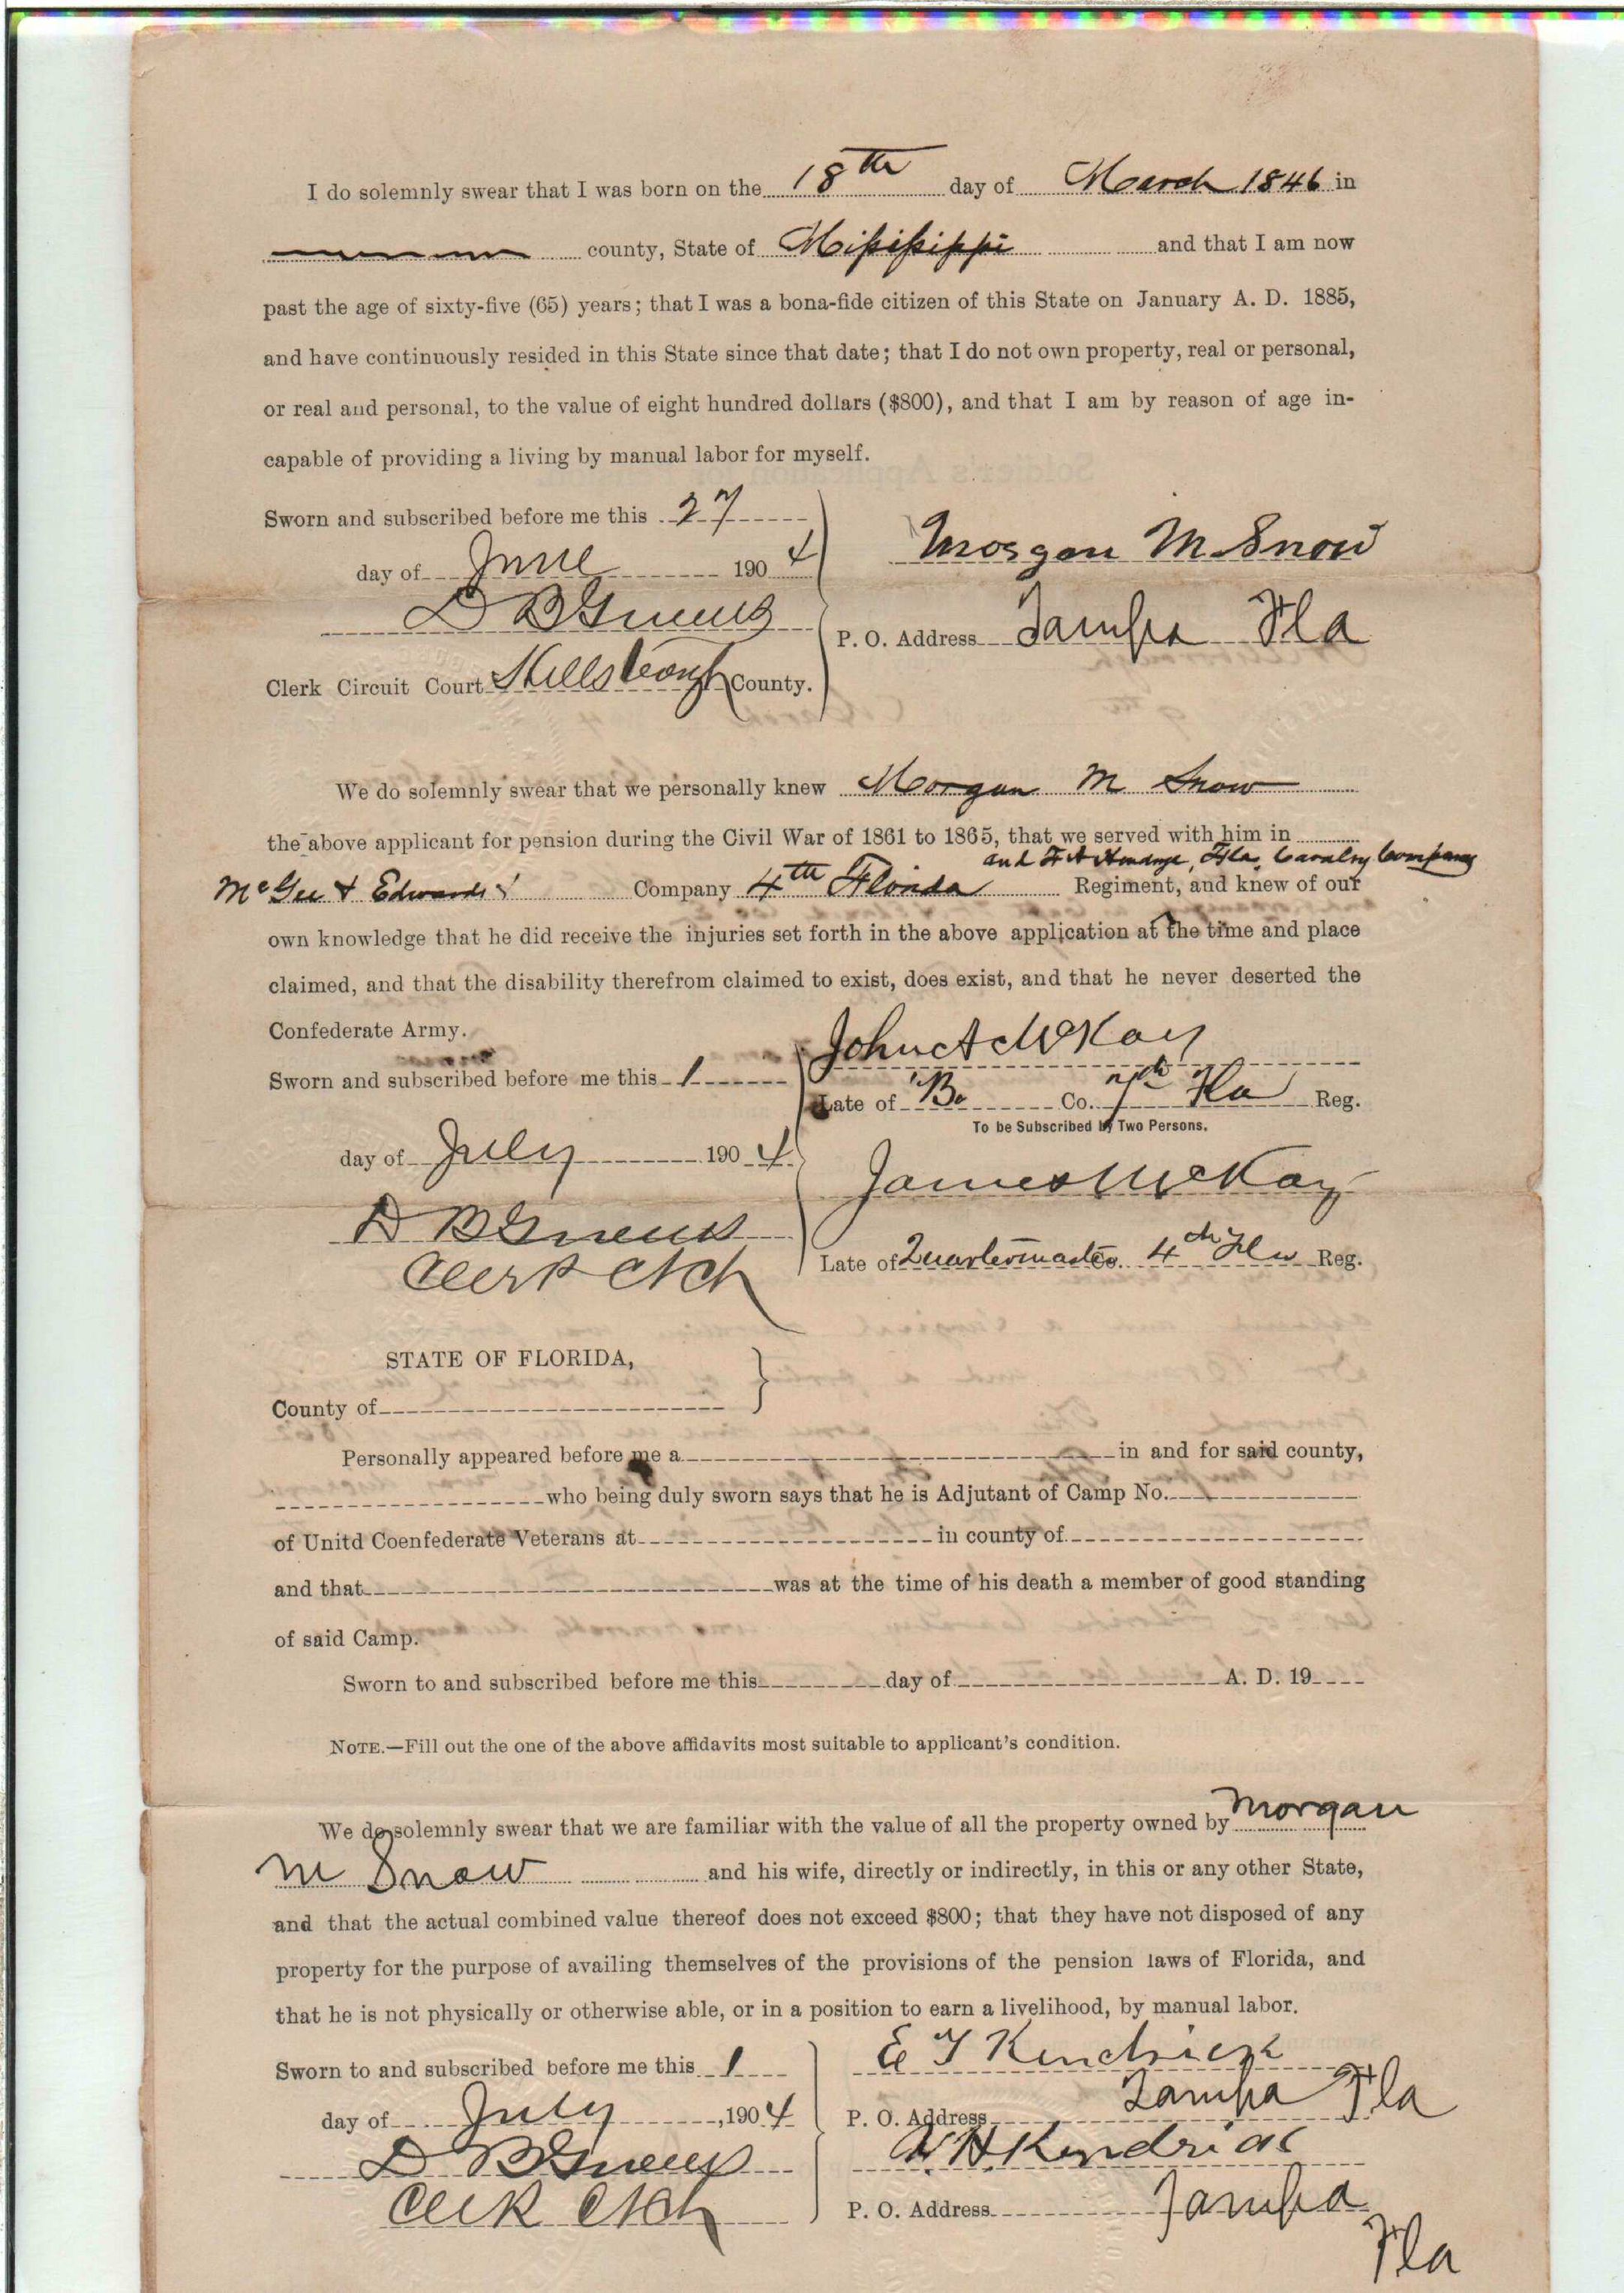 I do solemnly swear that I was born on the 18th day of March 1846 in
county, State of Mississippi and that I am now
past the age of sixty-five (65) years; that I was a bona-fide citizen of this State on January A. D. 1885,
and have continuously resided in this State since that date; that I do not own property, real or personal,
or real and personal, to the value of eight hundred dollars ($800), and that I am by reason of age in-
capable of providing a living by manual labor for myself.
Sworn and subscribed before me this 27
day of June 1904
Morgan M. Snow
D B Givens
P. O. Address Tampa Fla
Clerk Circuit Court Hillsborough County.
We do solemnly swear that we personally knew Morgan M Snow
the above applicant for pension during the Civil War of 1861 to 1865, that we served with him in
and F A Hendry, Fla, Cavalry Company
McGee & Edwards Company 4th Florida Regiment, and knew of our
own knowledge that he did receive the injuries set forth in the above application at the time and place
claimed, and that the disability therefrom claimed to exist, does exist, and that he never deserted the
Confederate Army.
John A McKay
Sworn and subscribed before me this 1
Late of "B. Co. 7th Fla Reg.
To be Subscribed by Two Persons.
day of July 1904
James McKay
D B Givens
Clerk
Late of Quartermaster 4th Fla Reg.
STATE OF FLORIDA,
County of
Personally appeared before me a in and for said county,
who being duly sworn says that he is Adjutant of Camp No.
of Unitd Coenfederate Veterans at in county of
and that was at the time of his death a member of good standing
of said Camp.
Sworn to and subscribed before me this day of A. D. 19
NOTE.—Fill out the one of the above affidavits most suitable to applicant's condition.
We do solemnly swear that we are familiar with the value of all the property owned by Morgan
M Snow and his wife, directly or indirectly, in this or any other State,
and that the actual combined value thereof does not exceed $800; that they have not disposed of any
property for the purpose of availing themselves of the provisions of the pension laws of Florida, and
that he is not physically or otherwise able, or in a position to earn a livelihood, by manual labor.
E T Kendrick
Sworn to and subscribed before me this 1
day of July, 1904
P. O. Address Tampa Fla
D B Givens
W. H. Kendrick
Clerk
P. O. Address Tampa
Fla